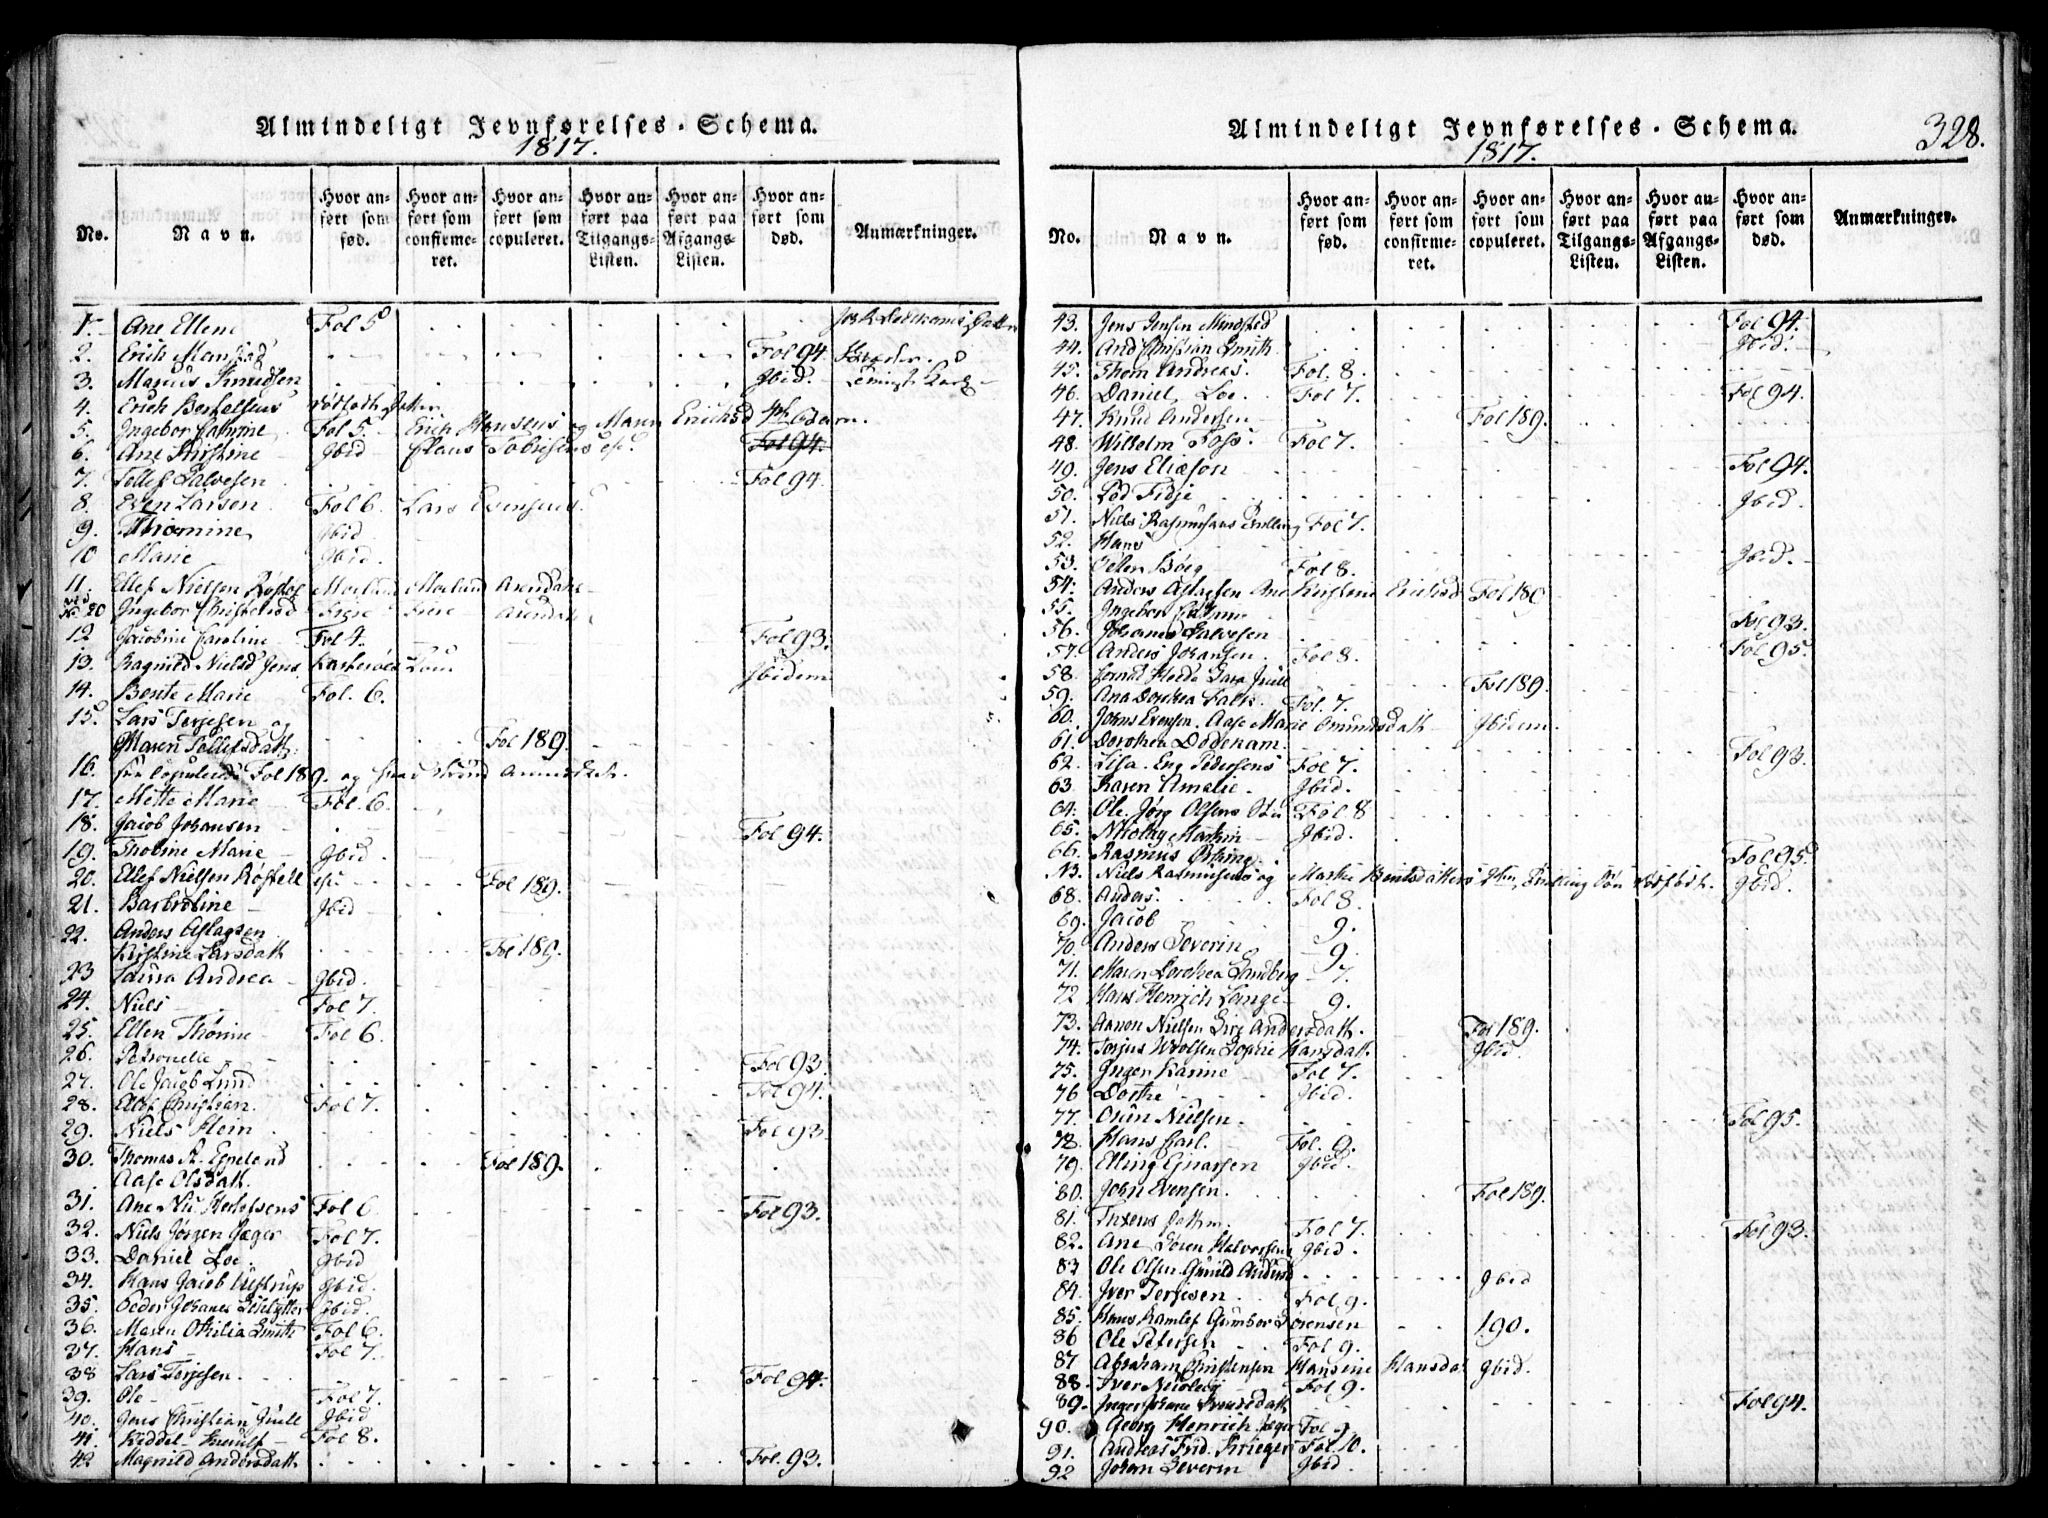 Almindeligt Jevnførelses-Schema.
1817.
No. Navn. Hvor anført som fød. Hvor anført som confirmeret. Hvor anført som copuleret. Hvor anført paa Tilgangs-Listen. Hvor anført paa Afgangs-Listen. Hvor anført som død. Anmærkninger.
1. Ane Ellene Fol 5
2. Erich Fol 94
3. Marcus Knudsen Ibid.
4. Erich Bertelsens
5. Ingebor Cathrine Fol 5. Erich Hansens og Maren
6. Ane Kirstine Ibid Claus Tobiesens Fol 94.
7. Tellef Salvesen Fol 94
8. Even Larsen Fol 6. Lars Evensens
9. Thomine Ibid
10 Marie Ibid.
11. Ellef Nielsen
Ingebor
12 Jacobine Caroline Fol 4. Fol 93.
13. Ragnild Nielsd Jens Ibidem
14. Bente Marie Fol. 6.
15. Lars Terjesen og
Maren Tellefsdatt. Fol 189.
16. Fol 189. og
17. Mette Marie Fol. 6.
18. Jacob Johansen Fol 94.
19. Thobine Marie Ibid.
20. Ellef Nielsen Røstell Fol 189.
21. Barbroline Ibid
22. Anders Aslagsen
Kirstine Larsdatt Fol 189.
23 Laura Andrea Ibid.
24. Niels Fol 7.
25. Ellen Thorine Fol 6.
26. Petronelle Fol 93.
27. Ole Jacob Lund Fol 94.
28. Ellef Christian. Fol 7.
29. Niels Hein Fol 93.
30. Thomas A. Egeland Fol 189.
Aase Olsdatt.
31. Ane Fol 6 Fol 93.
32. Niels Jörgen Jæger Fol 7.
33. Daniel Loe. Ibid
34. Hans Jacob Ibid.
35. Peder Johannes Ibid.
36. Maren Othilia Smith Fol 6.
37. Hans Fol 7.
38 Lars Terjesen. Fol 94.
39. Ole Fol 7.
40. Jens Christian Juell Ibid
41. Keddel Fol 8.
42 Magnild Andersdatt. Fol. 93.
Almindeligt Jevnførelses-Schema.
1817.
328.
No. Navn. Hvor anført som fød. Hvor anført som confirmeret. Hvor anført som copuleret. Hvor anført paa Tilgangs-Listen. Hvor anført paa Afgangs-Listen. Hvor anført som død. Anmærkninger.
43. Jens Jensen Fol 94.
44. And Christian Smith Ibid.
45. Thom Andreas. Fol. 8.
46. Daniel Loe Fol 7. Fol 94.
47. Knud Andersen Fol 189.
48. Wilhelm Foss. Fol 7.
49. Jens Eliæson Fol 94.
50. Fidje Ibid.
51. Niels Rasmussens Fol 7.
52. Hans Ibid.
53. Fol 8.
54. Anders Aslagsen Ane Kirstine Fol 189
55. Ingebor
56. Johannes Salvesen Fol 93.
57. Anders Johansen. Fol 8. Fol 95
58. Fol 189.
59. Ana Dorthea Falk Fol. 7.
60. Johns Evensen. Aase Marie Omundsdatt Ibidem.
61. Dorothea Dodekam Fol 93.
62. Lisa. Eng Pedersens Fol 7.
63. Karen Amalie. Ibid.
64. Ole Jørg Olsens Fol 8
65. Nicolay Martin Ibid.
66. Rasmus Fol 95
No. Niels Rasmussens og Marthe Bentsdatters Ibid.
68. Anders. Fol 8.
69. Jacob 9.
70. Anders Severin 9.
71. Maren Dorothea Sandberg 7.
72 Hans Henrich Lange 9.
73. Aanon Nielsen Siri Andersdatt. Fol 189.
74. Torjus Sophie Hansdatt. Ibid.
75. Inger Karine Fol 7.
76 Dorthe Ibid.
77. Osun Nielsen. Fol 95.
78. Hans Carl. Fol. 9.
79. Elling Gjnarsen Ibid.
80. John Evensen. Fol 189.
81. Fol 7. Fol 93.
82. Ane Sören Halvorsens Ibid.
83 Ole Olsen Gunild Ibid
84. Iver Terjesen Fol 9.
85. Hans Ramlef Gumbor Sörensen 190.
86 Ole Petersen Fol 9.
87 Abraham Christensen Hansine Hansdat Ibid.
88. Iver Nicolay Fol 9.
89. Inger Johane Knudsdatt Fol 94.
90. Georg Henrich Jæger Fol 9.
91. Andreas Frid. Krieger Fol. 10.
92 Johan Severin Ibid.